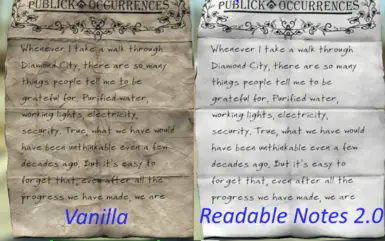 PUBLICK OCCURRENCES
Whenever I take a walk through
Diamond City, there are so many
things people tell me to be
grateful for. Purified water,
working lights, electricity,
security. True, what we have would
have been unthinkable even a few
decades ago. But it's easy to
forget that, even after all the
progress we have made, we are
Vanilla
PUBLICK OCCURRENCES
Whenever I take a walk through
Diamond City, there are so many
things people tell me to be
grateful for. Purified water,
working lights, electricity,
security. True, what we have would
have been unthinkable even a few
decades ago. But it's easy to
forget that, even after all the
progress we have made, we are
Readable Notes 2.0